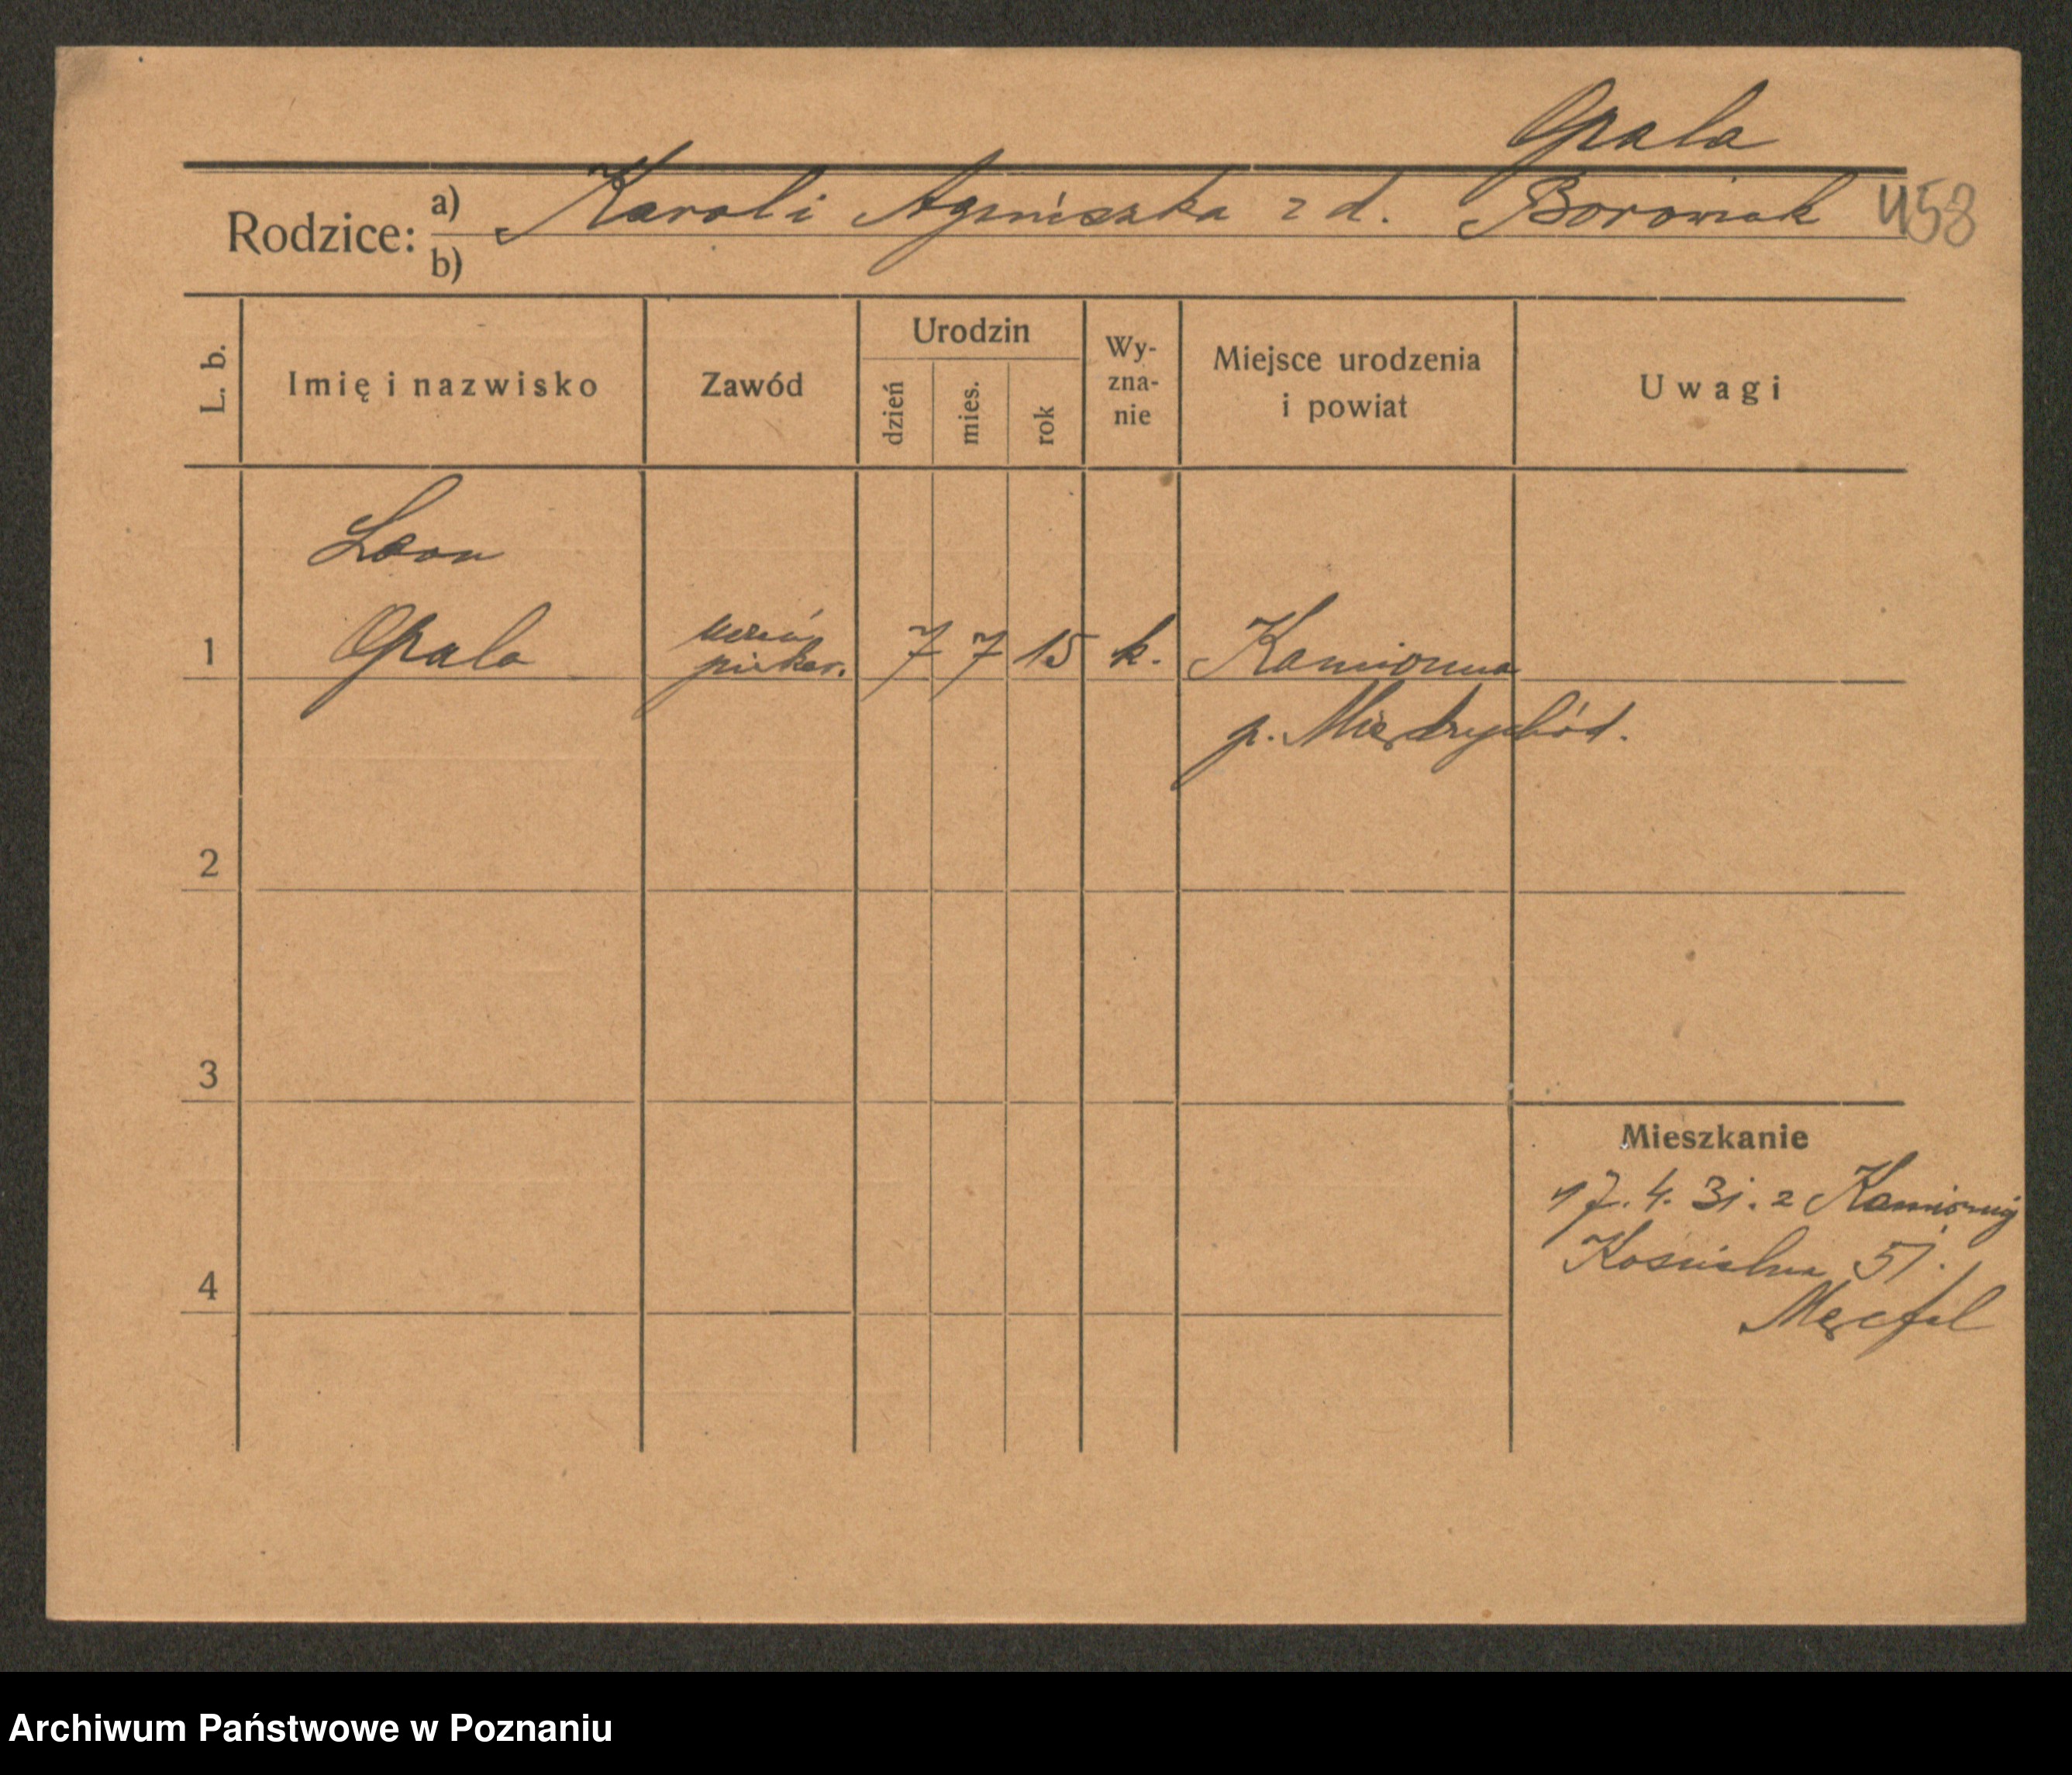 Opala
Rodzice: a) Karol i Agnieszka z d. Borowiak 458
b)
L. b. Imię i nazwisko Zawód Urodzin dzień mies. rok Wy-zna-nie Miejsce urodzenia i powiat Uwagi
Leon
uczeń
1 Opala piekar. 7 7 15 k. Kamionna
p. Międzychód.
2
3
Mieszkanie
17. 4. 31. z Kamionny
Kościelna 51.
4
Archiwum Państwowe w Poznaniu